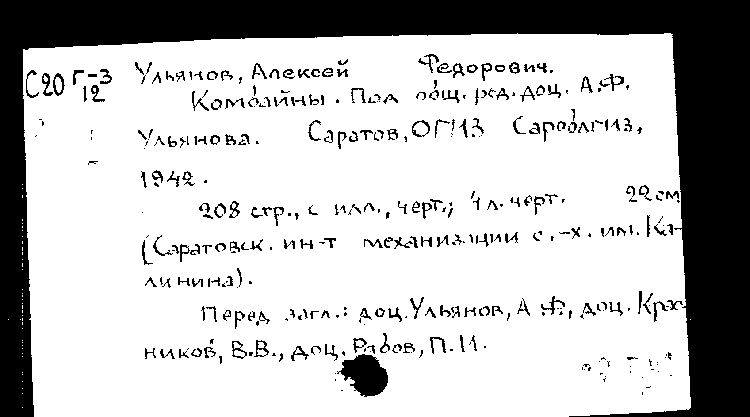 С20 Г-3/12 Ульянов, Алексей Федорович.
Комбайны. Под общ. ред. доц. А.Ф.
Ульянова. Саратов, ОГИЗ Сароблгиз,
1942.
208 стр., с илл., черт.; 4 л. черт. 22 см
(Саратовск. ин-т механизации с.-х. им. Ка-
линина).
Перед загл.: доц. Ульянов, А.Ф., доц. Крас
ников, В.В., доц. Рябов, П.И.